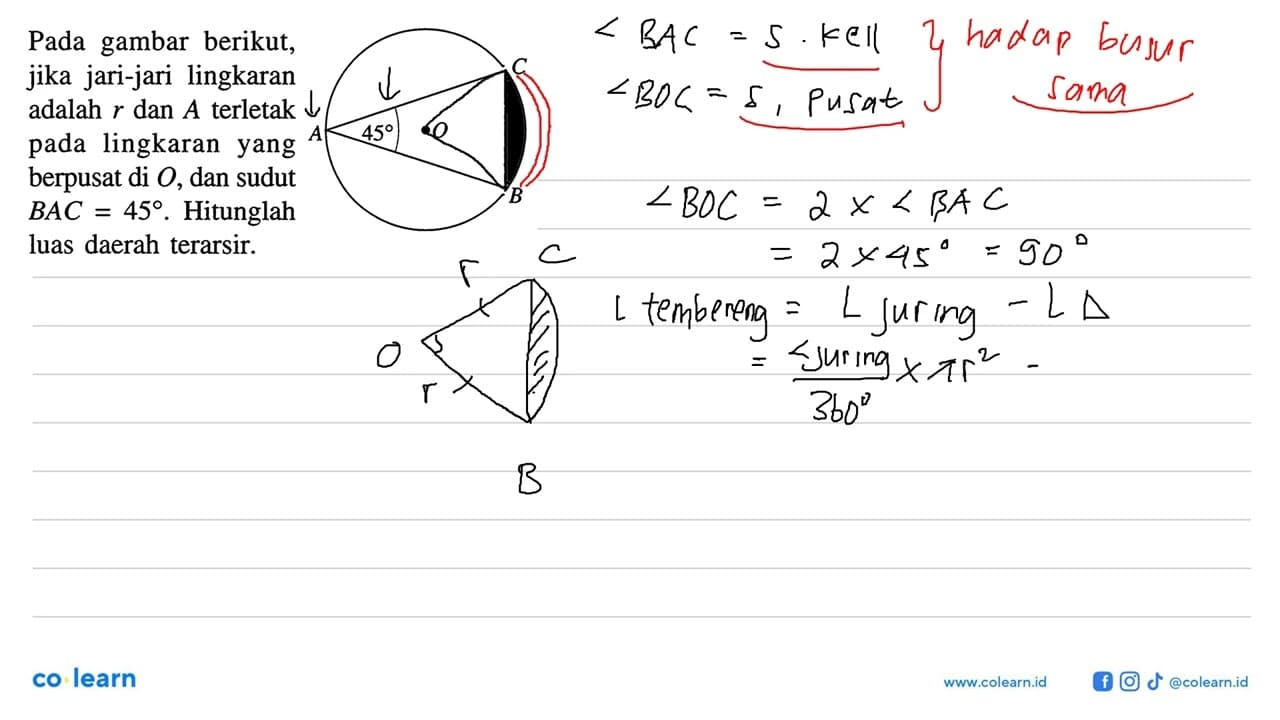 Pada gambar berikut,
jika jari-jari lingkaran
adalah r dan A terletak
pada lingkaran yang
berpusat di O, dan sudut
BAC = 45°. Hitunglah
luas daerah terarsir.
A 45° O C B
∠BAC = s. kell } hadap busur
∠BOC = s, pusat sama
∠BOC = 2 x ∠BAC
= 2 x 45° = 90°
L tembereng = L juring - L Δ
= ∠juring/360° x πr² -
r C
O
r
B
co learn
www.colearn.id @colearn.id